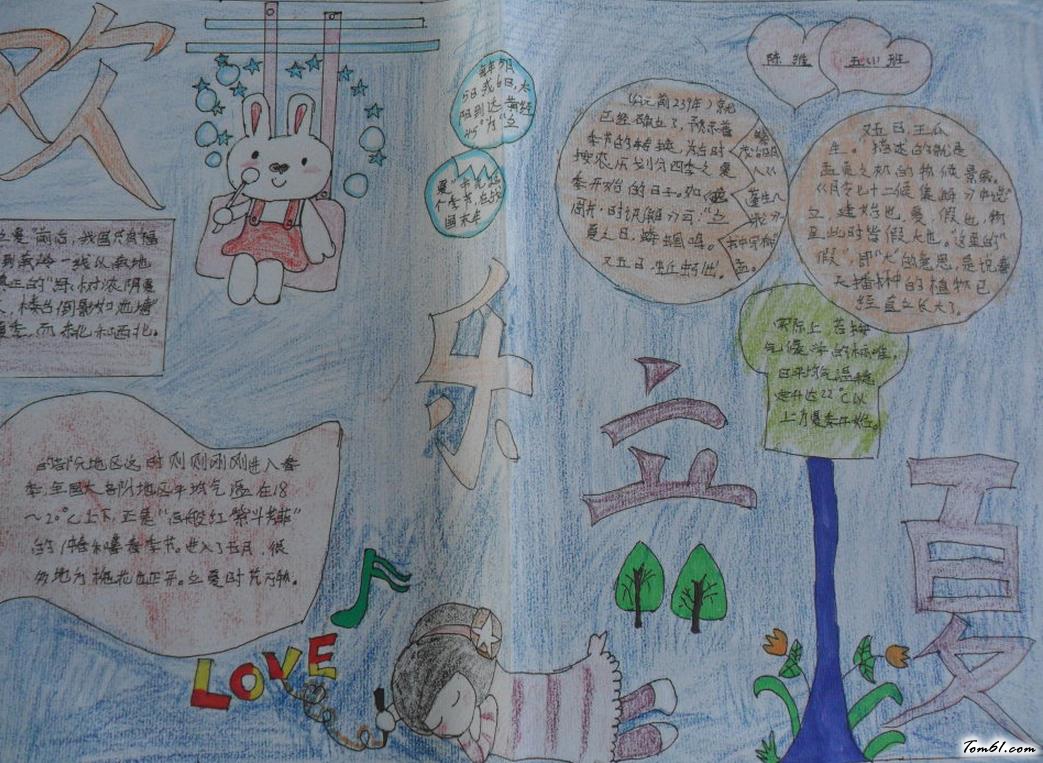 欢
乐
立
夏
陈维
五(1)班
每年5月
5日或6日,太
阳到达黄经
45°为"立
夏"
个季节,在战
国末年
(公元前239年)就
已经确立了,预示着
季节的转换,为古时
按农历划分四季之夏
季开始的日子。如
夏之日,蝼蝈鸣。
又五日,蚯蚓出。
又五日,王瓜
生。"描述的就是
孟夏之初的物候景象。
《月令七十二候集解》中说
立,建始也,夏,假也,物
至此时皆假大也。"这里的"
假",即"大"的意思,是说春
天播种的植物已
经直立长大了。
实际上,若按
气候学的标准,
日平均气温稳
定升达22℃以
上为夏季开始。
立夏"前后,我国只有福
到南岭一线以南地
真正的"绿树浓阴夏
,楼台倒影如池塘"
夏季,而东北和西北。
的部分地区这时则刚刚进入春
季,全国大部分地区平均气温在18
~20℃上下,正是"百般红紫斗芳菲"
的仲春和暮春季节。进入了五月,很
多地方槐花也正开。立夏时节万物。
LOVE
Tom61.com